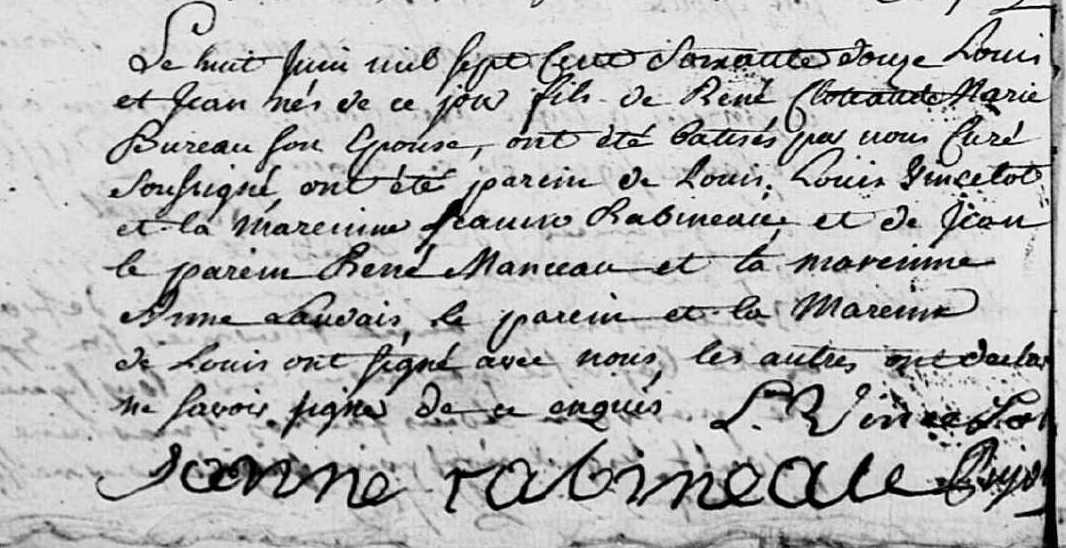 Le huit Juin mil sept cent soixante douze Louis
et Jean nés de ce jour fils de René Marie
Bureau son Epouse, ont été batisés par nous Curé
soussigné ont été parein de Louis, Louis Vincelot
et la mareinne Jeanne Rabineau, et de Jean
le parein René Manceau et la mareinne
Anne Landais, le parein et la Mareine
de Louis ont signé avec nous, les autres ont declar
ne savoir signer de ce enquis L. Vincelot
Janne rabineau